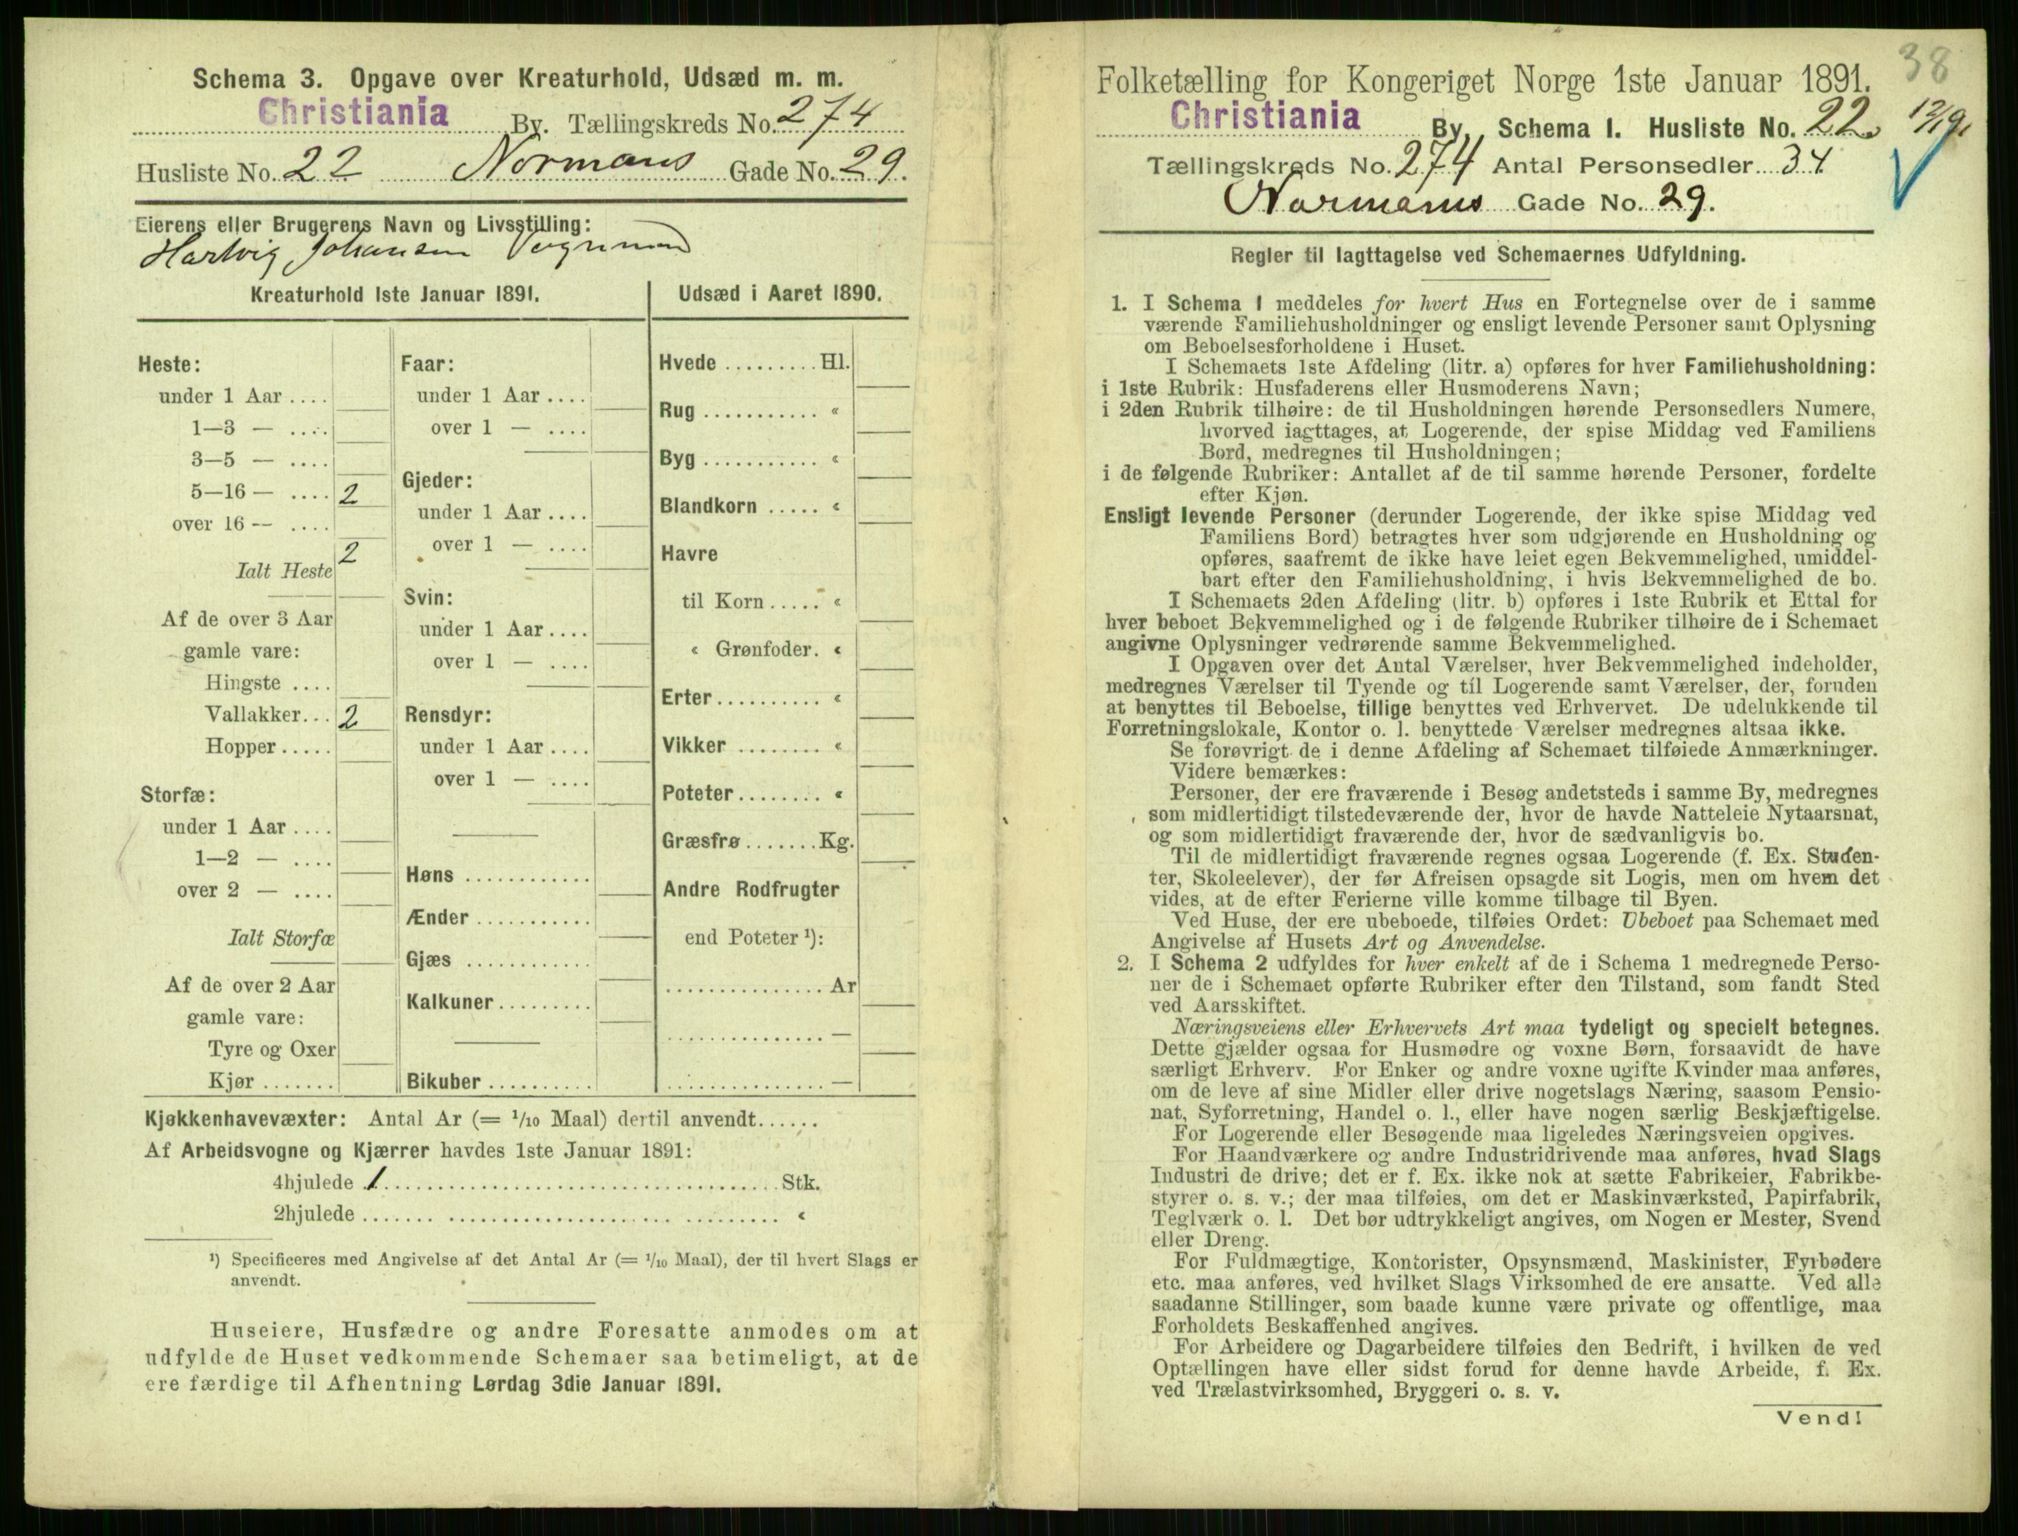 Schema 3. Opgave over Kreaturhold, Udsæd m. m.
Christiania By. Tællingskreds No. 274
Husliste No. 22 Normans Gade No. 29.
Eierens eller Brugerens Navn og Livsstilling:
Hartvig Johansen Vognmand
Kreaturhold 1ste Januar 1891.
Heste:
under 1 Aar ....
1—3 — ....
3—5 — ....
5—16 — .... 2
over 16 — ....
Ialt Heste 2
Af de over 3 Aar
gamle vare:
Hingste ....
Vallakker... 2
Hopper.....
Storfæ:
under 1 Aar ....
1—2 — ....
over 2 — ....
Ialt Storfæ
Af de over 2 Aar
gamle vare:
Tyre og Oxer
Kjør.......
Faar:
under 1 Aar ....
over 1 — ....
Gjeder:
under 1 Aar ....
over 1 — ....
Svin:
under 1 Aar ....
over 1 — ....
Rensdyr:
under 1 Aar ....
over 1 — ....
Høns ............
Ænder ...........
Gjæs ............
Kalkuner.........
Bikuber ..........
Udsæd i Aaret 1890.
Hvede ......... Hl.
Rug ........... «
Byg ........... «
Blandkorn ..... «
Havre
til Korn ..... «
« Grønfoder. «
Erter.......... «
Vikker ........ «
Poteter........ «
Græsfrø....... Kg.
Andre Rodfrugter
end Poteter ¹):
............... Ar
............... —
............... —
Kjøkkenhavevæxter: Antal Ar (= 1/10 Maal) dertil anvendt......
Af Arbeidsvogne og Kjærrer havdes 1ste Januar 1891:
4hjulede 1 ............ Stk.
2hjulede ............ «
¹) Specificeres med Angivelse af det Antal Ar (= 1/10 Maal), der til hvert Slags er
anvendt.
Huseiere, Husfædre og andre Foresatte anmodes om at
udfylde de Huset vedkommende Schemaer saa betimeligt, at de
ere færdige til Afhentning Lørdag 3die Januar 1891.
38
Folketælling for Kongeriget Norge 1ste Januar 1891.
Christiania By. Schema I. Husliste No. 22.
Tællingskreds No. 274 Antal Personsedler 34
Normans Gade No. 29.
Regler til Iagttagelse ved Schemaernes Udfyldning.
1. I Schema 1 meddeles for hvert Hus en Fortegnelse over de i samme
værende Familiehusholdninger og ensligt levende Personer samt Oplysning
om Beboelsesforholdene i Huset.
I Schemaets 1ste Afdeling (litr. a) opføres for hver Familiehusholdning:
i 1ste Rubrik: Husfaderens eller Husmoderens Navn;
i 2den Rubrik tilhøire: de til Husholdningen hørende Personsedlers Numere,
hvorved iagttages, at Logerende, der spise Middag ved Familiens
Bord, medregnes til Husholdningen;
i de følgende Rubriker: Antallet af de til samme hørende Personer, fordelte
efter Kjøn.
Ensligt levende Personer (derunder Logerende, der ikke spise Middag ved
Familiens Bord) betragtes hver som udgjørende en Husholdning og
opføres, saafremt de ikke have leiet egen Bekvemmelighed, umiddel-
bart efter den Familiehusholdning, i hvis Bekvemmelighed de bo.
I Schemaets 2den Afdeling (litr. b) opføres i 1ste Rubrik et Ettal for
hver beboet Bekvemmelighed og i de følgende Rubriker tilhøire de i Schemaet
angivne Oplysninger vedrørende samme Bekvemmelighed.
I Opgaven over det Antal Værelser, hver Bekvemmelighed indeholder,
medregnes Værelser til Tyende og til Logerende samt Værelser, der, foruden
at benyttes til Beboelse, tillige benyttes ved Erhvervet. De udelukkende til
Forretningslokale, Kontor o. l. benyttede Værelser medregnes altsaa ikke.
Se forøvrigt de i denne Afdeling af Schemaet tilføiede Anmærkninger.
Videre bemærkes:
Personer, der ere fraværende i Besøg andetsteds i samme By, medregnes
som midlertidigt tilstedeværende der, hvor de havde Natteleie Nytaarsnat,
og som midlertidigt fraværende der, hvor de sædvanligvis bo.
Til de midlertidigt fraværende regnes ogsaa Logerende (f. Ex. Studen-
ter, Skoleelever), der før Afreisen opsagde sit Logis, men om hvem det
vides, at de efter Ferierne ville komme tilbage til Byen.
Ved Huse, der ere ubeboede, tilføies Ordet: Ubeboet paa Schemaet med
Angivelse af Husets Art og Anvendelse.
2. I Schema 2 udfyldes for hver enkelt af de i Schema 1 medregnede Perso-
ner de i Schemaet opførte Rubriker efter den Tilstand, som fandt Sted
ved Aarsskiftet.
Næringsveiens eller Erhvervets Art maa tydeligt og specielt betegnes.
Dette gjælder ogsaa for Husmødre og voxne Børn, forsaavidt de have
særligt Erhverv. For Enker og andre voxne ugifte Kvinder maa anføres,
om de leve af sine Midler eller drive nogetslags Næring, saasom Pensio-
nat, Syforretning, Handel o. l., eller have nogen særlig Beskjæftigelse.
For Logerende eller Besøgende maa ligeledes Næringsveien opgives.
For Haandværkere og andre Industridrivende maa anføres, hvad Slags
Industri de drive; det er f. Ex. ikke nok at sætte Fabrikeier, Fabrikbe-
styrer o. s. v.; der maa tilføies, om det er Maskinværksted, Papirfabrik,
Teglværk o. l. Det bør udtrykkeligt angives, om Nogen er Mester, Svend
eller Dreng.
For Fuldmægtige, Kontorister, Opsynsmænd, Maskinister, Fyrbødere
etc. maa anføres, ved hvilket Slags Virksomhed de ere ansatte. Ved alle
saadanne Stillinger, som baade kunne være private og offentlige, maa
Forholdets Beskaffenhed angives.
For Arbeidere og Dagarbeidere tilføies den Bedrift, i hvilken de ved
Optællingen have eller sidst forud for denne havde Arbeide, f. Ex.
ved Trælastvirksomhed, Bryggeri o. s. v.
Vend!